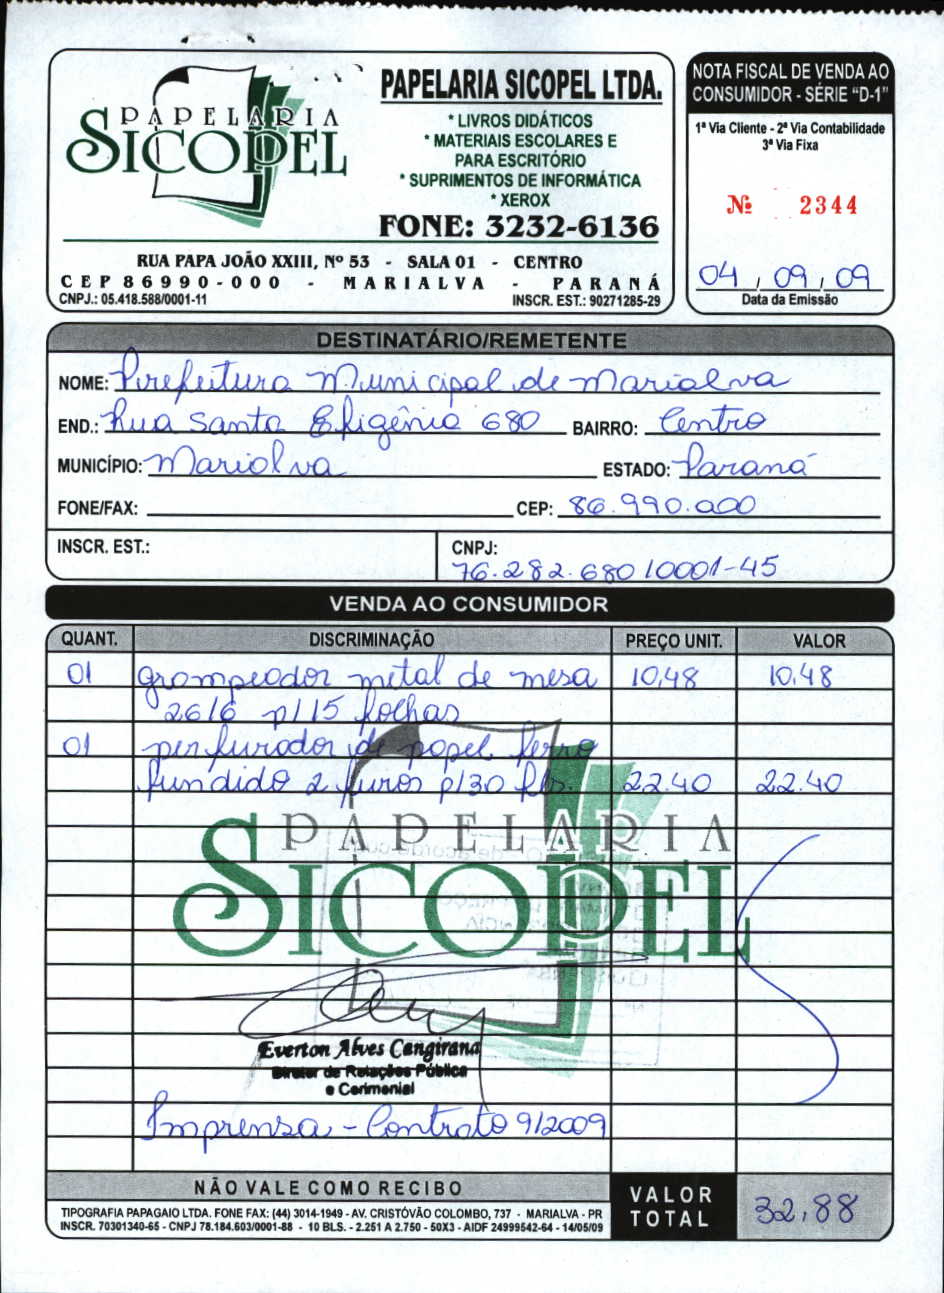 PAPELARIA
SICOPEL
PAPELARIA SICOPEL LTDA.
* LIVROS DIDÁTICOS
* MATERIAIS ESCOLARES E
PARA ESCRITÓRIO
* SUPRIMENTOS DE INFORMÁTICA
* XEROX
FONE: 3232-6136
RUA PAPA JOÃO XXIII, Nº 53 - SALA 01 - CENTRO
CEP 86990-000 - MARIALVA - PARANÁ
CNPJ.: 05.418.588/0001-11 INSCR. EST.: 90271285-29
NOTA FISCAL DE VENDA AO
CONSUMIDOR - SÉRIE "D-1"
1ª Via Cliente - 2ª Via Contabilidade
3ª Via Fixa
Nº 2344
04 / 09 / 09
Data da Emissão
DESTINATÁRIO/REMETENTE
NOME: Prefeitura Municipal de Marialva
END.: Rua Santa Efigênia 680 BAIRRO: Centro
MUNICÍPIO: Marialva ESTADO: Paraná
FONE/FAX: CEP: 86.990.000
INSCR. EST.: CNPJ:
76.282.680/0001-45
VENDA AO CONSUMIDOR
QUANT. DISCRIMINAÇÃO PREÇO UNIT. VALOR
01 grampeador metal de mesa 10,48 10,48
26/6 p/15 folhas
01 perfurador de papel ferro
fundido 2 furos p/30 fls. 22.40 22.40
PAPELARIA
SICOPEL
Everton Alves Cangirana
Diretor de Relações Pública
e Cerimonial
Imprensa - Contrato 9/2009
NÃO VALE COMO RECIBO
TIPOGRAFIA PAPAGAIO LTDA. FONE FAX: (44) 3014-1949 - AV. CRISTÓVÃO COLOMBO, 737 - MARIALVA - PR
INSCR. 70301340-65 - CNPJ 78.184.603/0001-88 - 10 BLS. - 2.251 A 2.750 - 50X3 - AIDF 24999542-64 - 14/05/09
VALOR
TOTAL 32,88